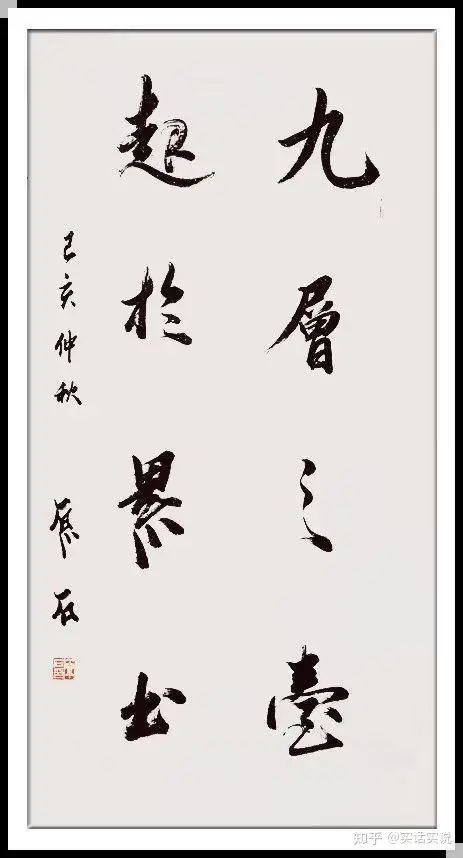 九層之臺
起於累土
己亥仲秋
知乎 @实话实说